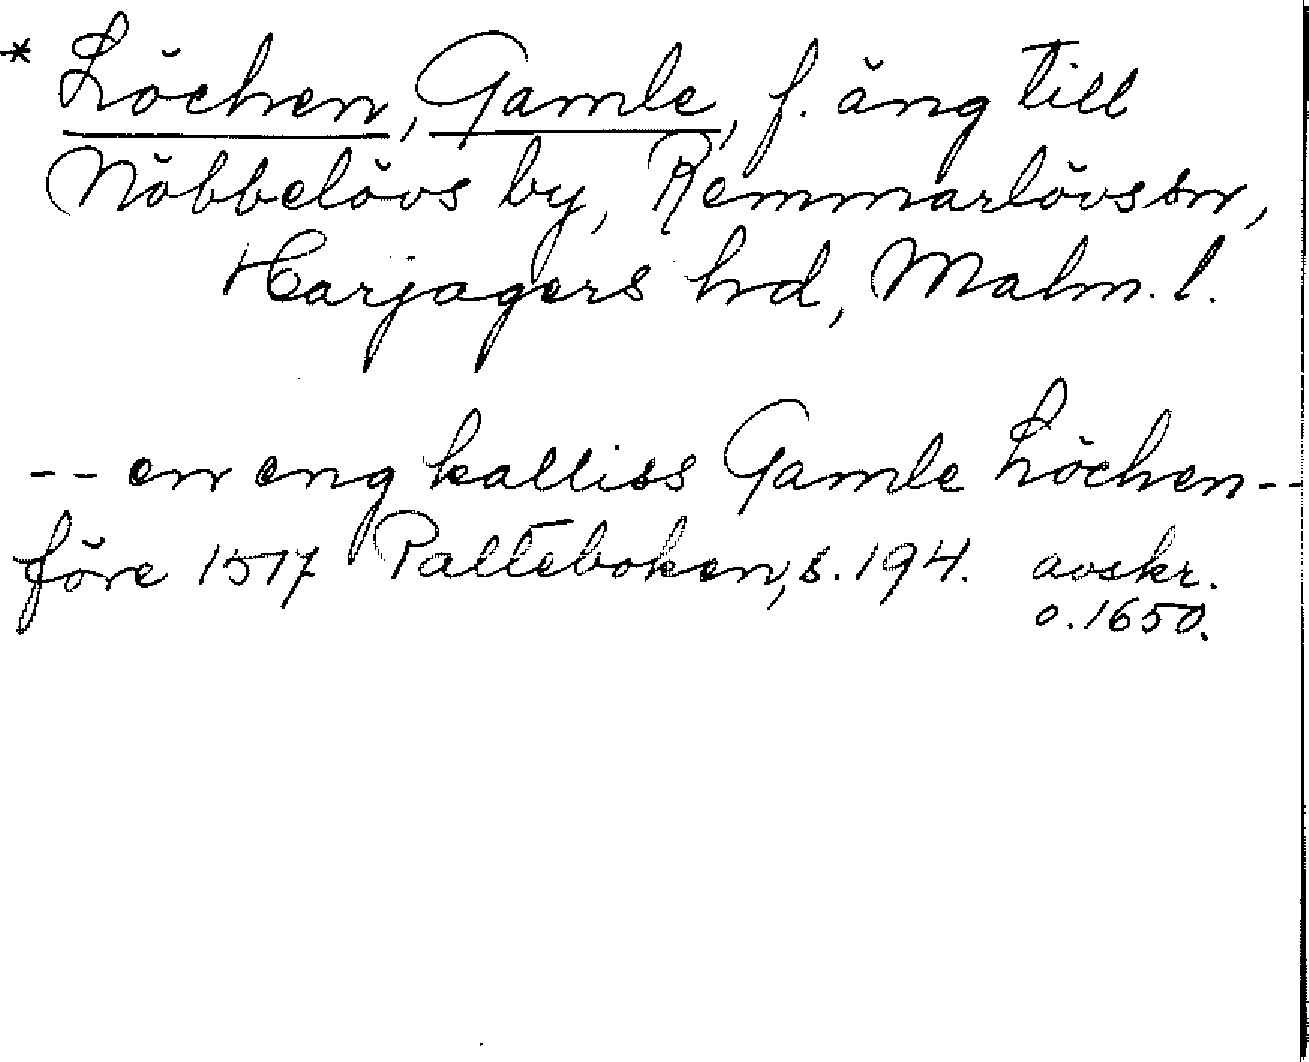 * Löchen, Gamle, f. äng till
Nöbbelövs by, Remmarlövs sn,
Harjagers hd, Malm. l.
-- en eng kalliss Gamle Löchen --
före 1517 Palteboken, s. 194. avskr.
o. 1650.